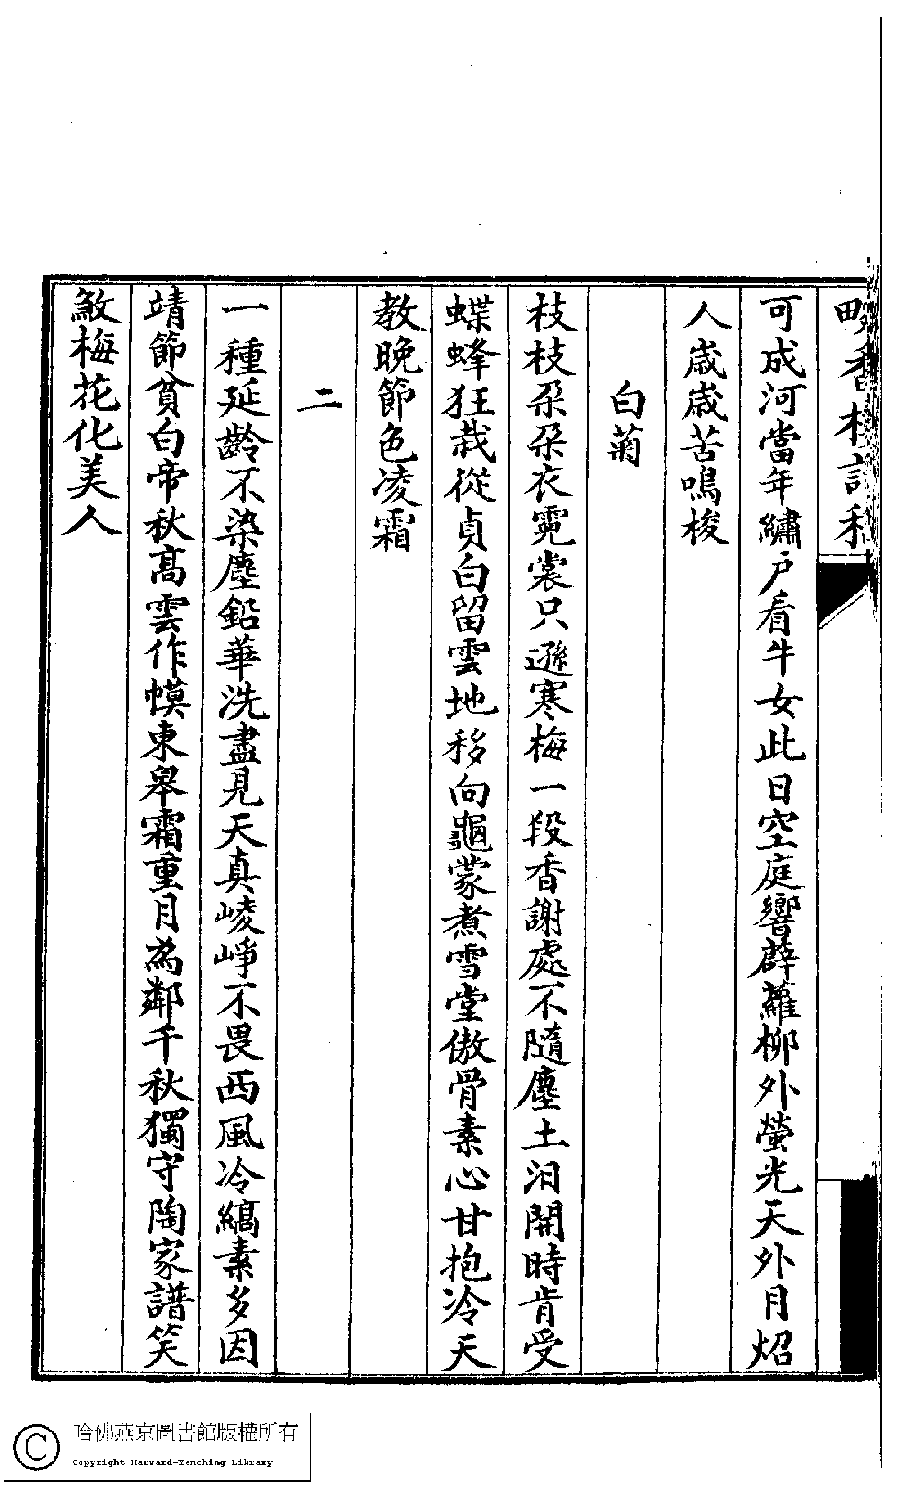 可成河當年繡戶看牛女此日空庭響薜蘿柳外螢光天外月炤
人歲歲苦鳴梭
白菊
枝枝朵朵衣霓裳只遜寒梅一段香謝處不隨塵土汩開時肯受
蝶蜂狂栽從貞白留雲地移向龜蒙煮雪堂傲骨素心甘抱冷天
教晚節色凌霜
二
一種延齡不染塵鉛華洗盡見天真崚崢不畏西風冷縞素多因
靖節貧白帝秋高雲作幙東皋霜重月為鄰千秋獨守陶家譜笑
敒梅花化美人
哈佛燕京圖書館版權所有
Copyright Harvard-Yenching Library